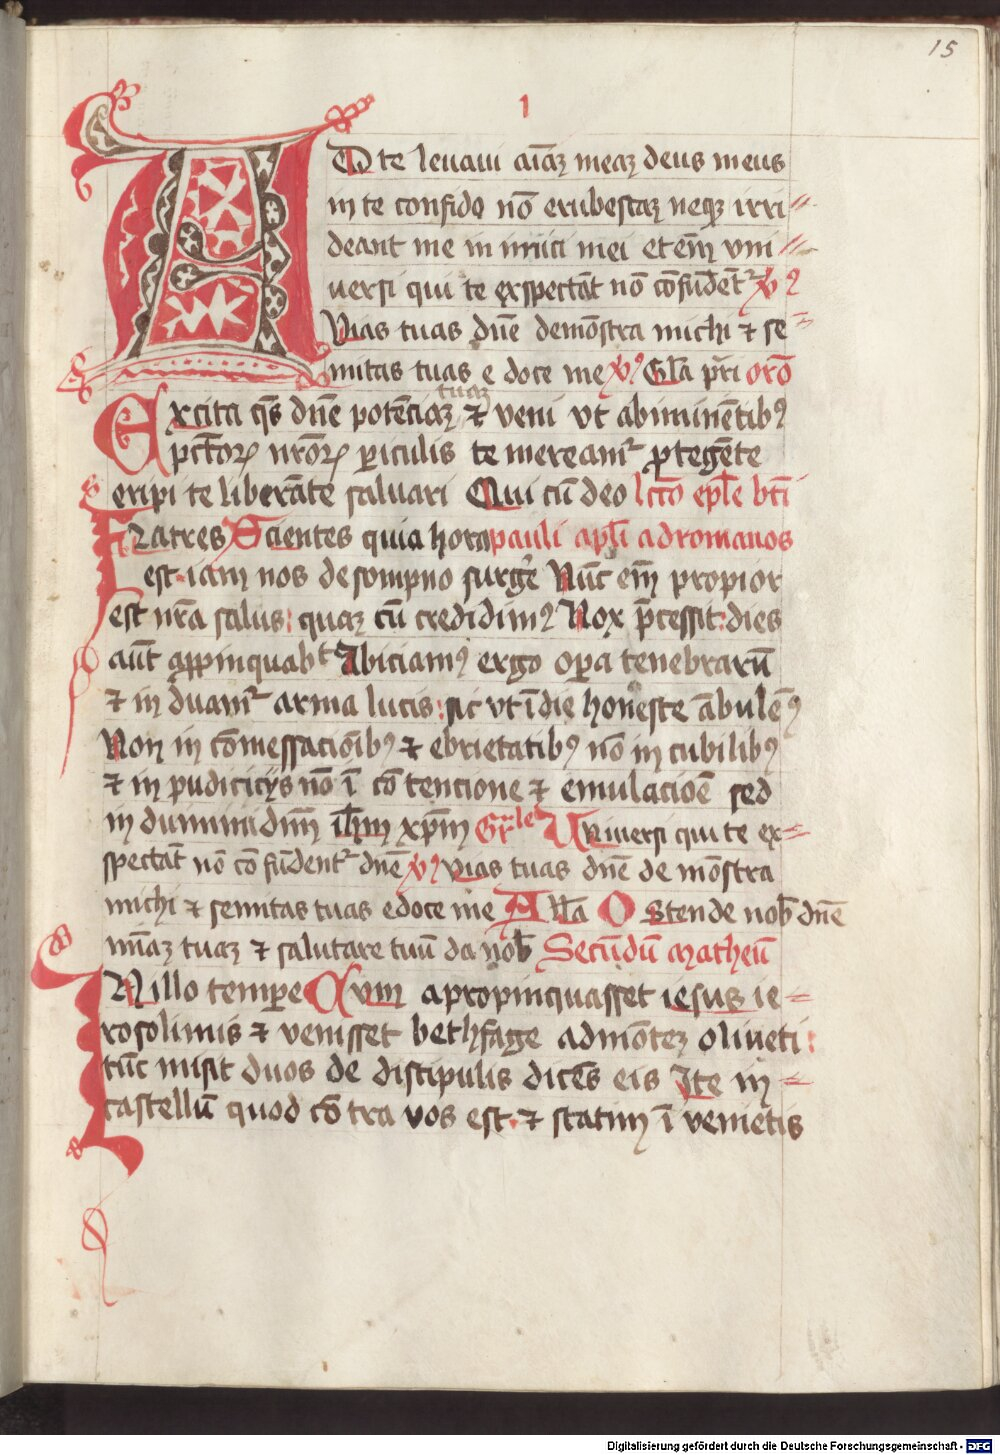 15
1
AD te leuaui aīaꝫ meaꝫ deus meus
in te confido nō erubescaꝫ neqꝫ irri⸗
deant me in imici mei et em̄ vni⸗
uersi qui te exspectāt nō cōfūdent᷑ ꝟ
Vias tuas dn̄e demōstra michi ⁊ se⸗
mitas tuas e doce me ꝟ Gl̄a pr̄i orō
tuaꝫ
Excita qs̄ dn̄e potēciaꝫ ⁊ veni vt abiminētibꝰ
pct̄oꝝ nr̄oꝝ ꝑiculis te meream᷑ ꝓtegēte
eripi te liberāte saluari Qui cū deo lcīo ep̄le bt̄i
Fratres Scientes quia hora pauli apl̄i ad romanos
est iam nos de sompno surgẽ Nūc em̄ propior
est nr̄a salus: quaꝫ cū credidimꝰ Nox p̄cessit: dies
aūt aꝓpinquabt Abiciamꝰ ergo oꝑa tenebrarū
⁊ in duam᷑ arma lucis: sic vt ī die honeste ābulēꝰ
Non in cōmessacioībꝰ ⁊ ebrietatibꝰ nō in cubilibꝰ
⁊ in pudicicijs nō ī cō tencione ⁊ emulacioē sed
in dūimini dn̄m ih̄m xp̄m Gr̄le Vniuersi qui te ex⸗
spectāt nō cō fūdent᷑ dn̄e ꝟ vias tuas dn̄e de mōstra
michi ⁊ semitas tuas edoce me All̄a O Stende nob̄ dn̄e
mi̅aꝫ tuaꝫ ⁊ salutare tuū da nob̄ Secūdū matheū
IN illo tempeꝛe Cvm apropinquasset iesus ie⸗
rosolimis ⁊ venisset bethfage ad mōteꝫ oliueti:
tūc misit duos de discipulis dicēs eis Ite in⸗
castellū quod cō tra vos est. ⁊ statim ī venietis
Digitalisierung gefördert durch die Deutsche Forschungsgemeinschaft - DFG